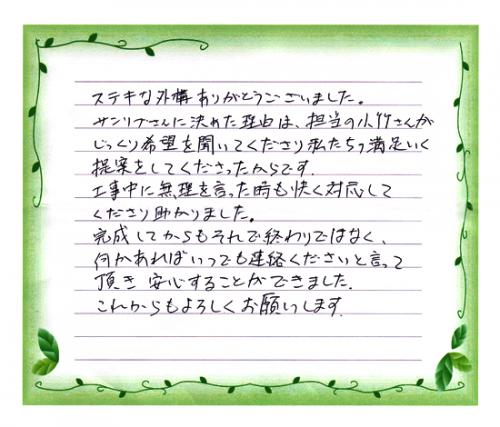 ステキな外構ありがとうございました。
サンリブさんに決めた理由は、担当の小竹さんが
じっくり希望を聞いてくださり私たちの満足いく
提案をしてくださったからです.
工事中に無理を言った時も快く対応して
くださり助かりました。
完成してからもそれで終わりではなく、
何かあればいつでも連絡くださいと言って
頂き 安心することができました.
これからもよろしくお願いします.